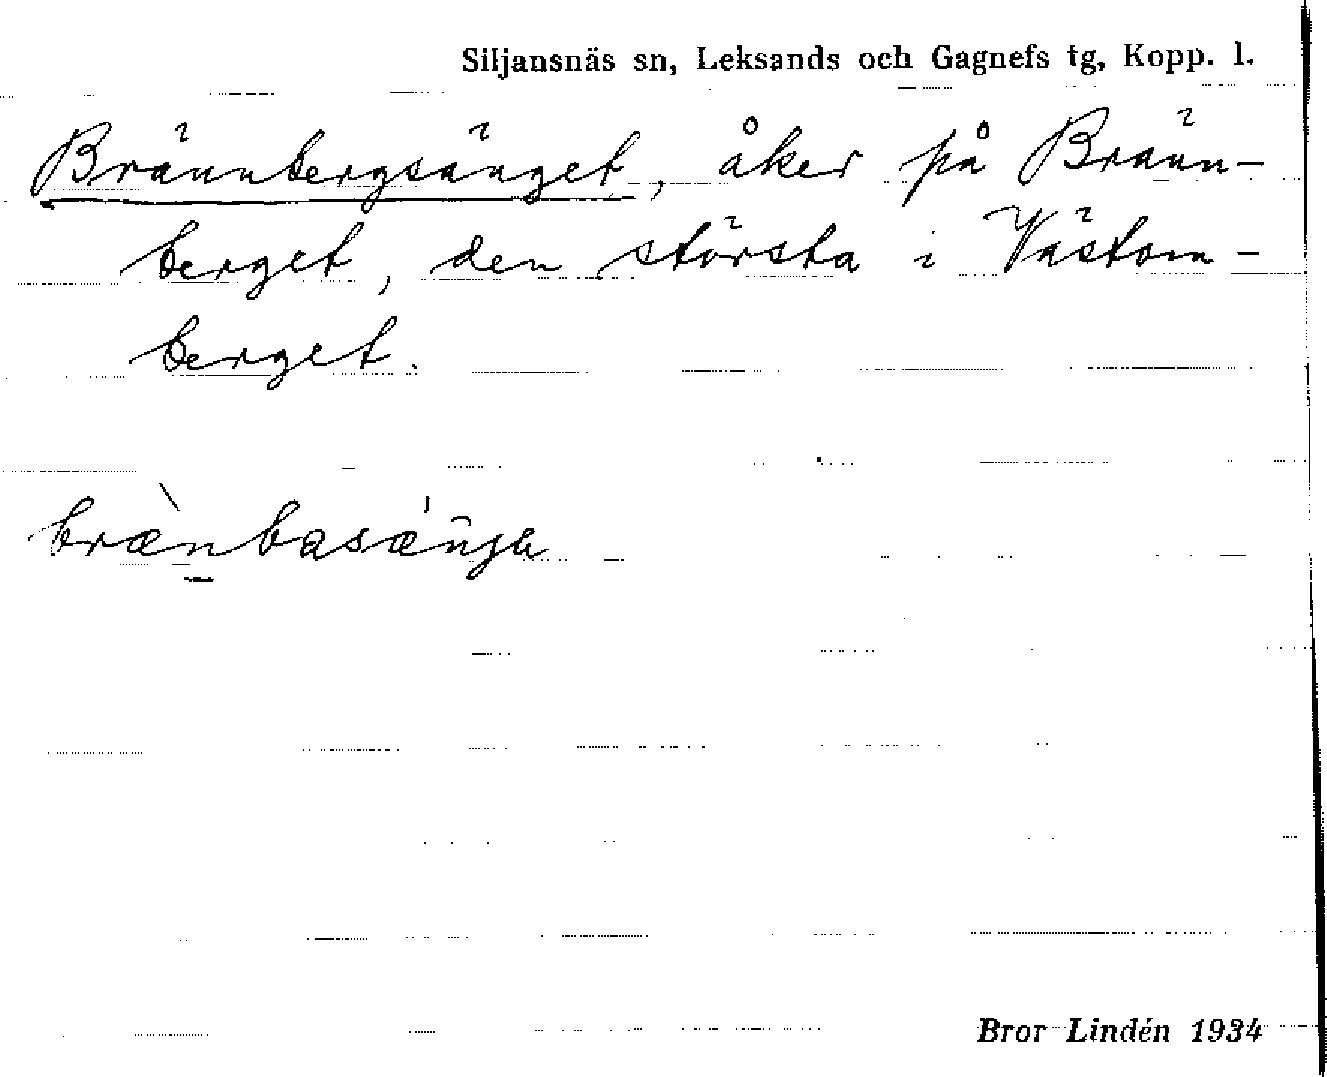 Siljansnäs sn, Leksands och Gagnefs tg, Kopp. l.
Brännbergsänget, åker på Bränn-
berget, den största i Västom-
berget.
brænbasæŋja
Bror Lindén 1934